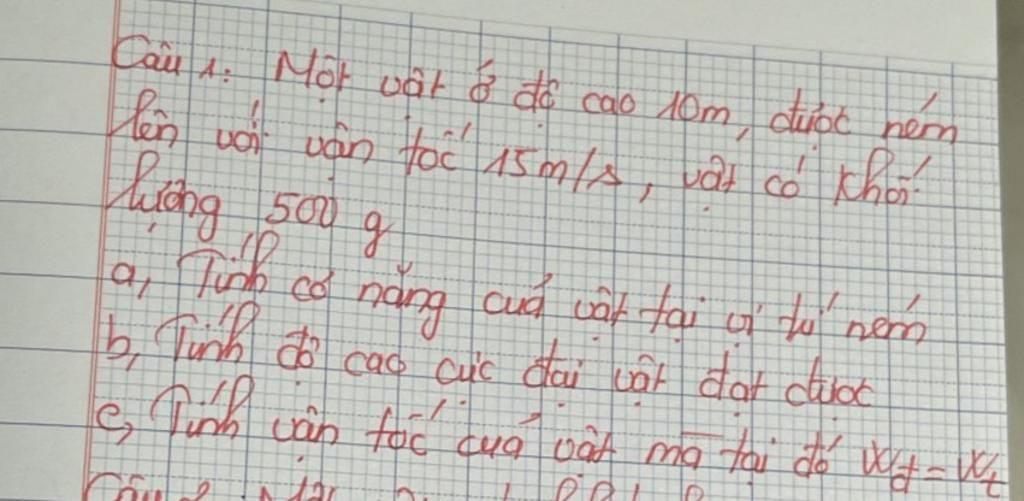 Câu 1: Một vật ở độ cao 10m, được ném
lên với vận tốc 15m/s, vật có khối
lượng 500 g
a, Tính cơ năng của vật tại vị trí ném
b, Tính độ cao cực đại vật đạt được
c, Tính vận tốc của vật mà tại đó Wđ = Wt
Câu 2